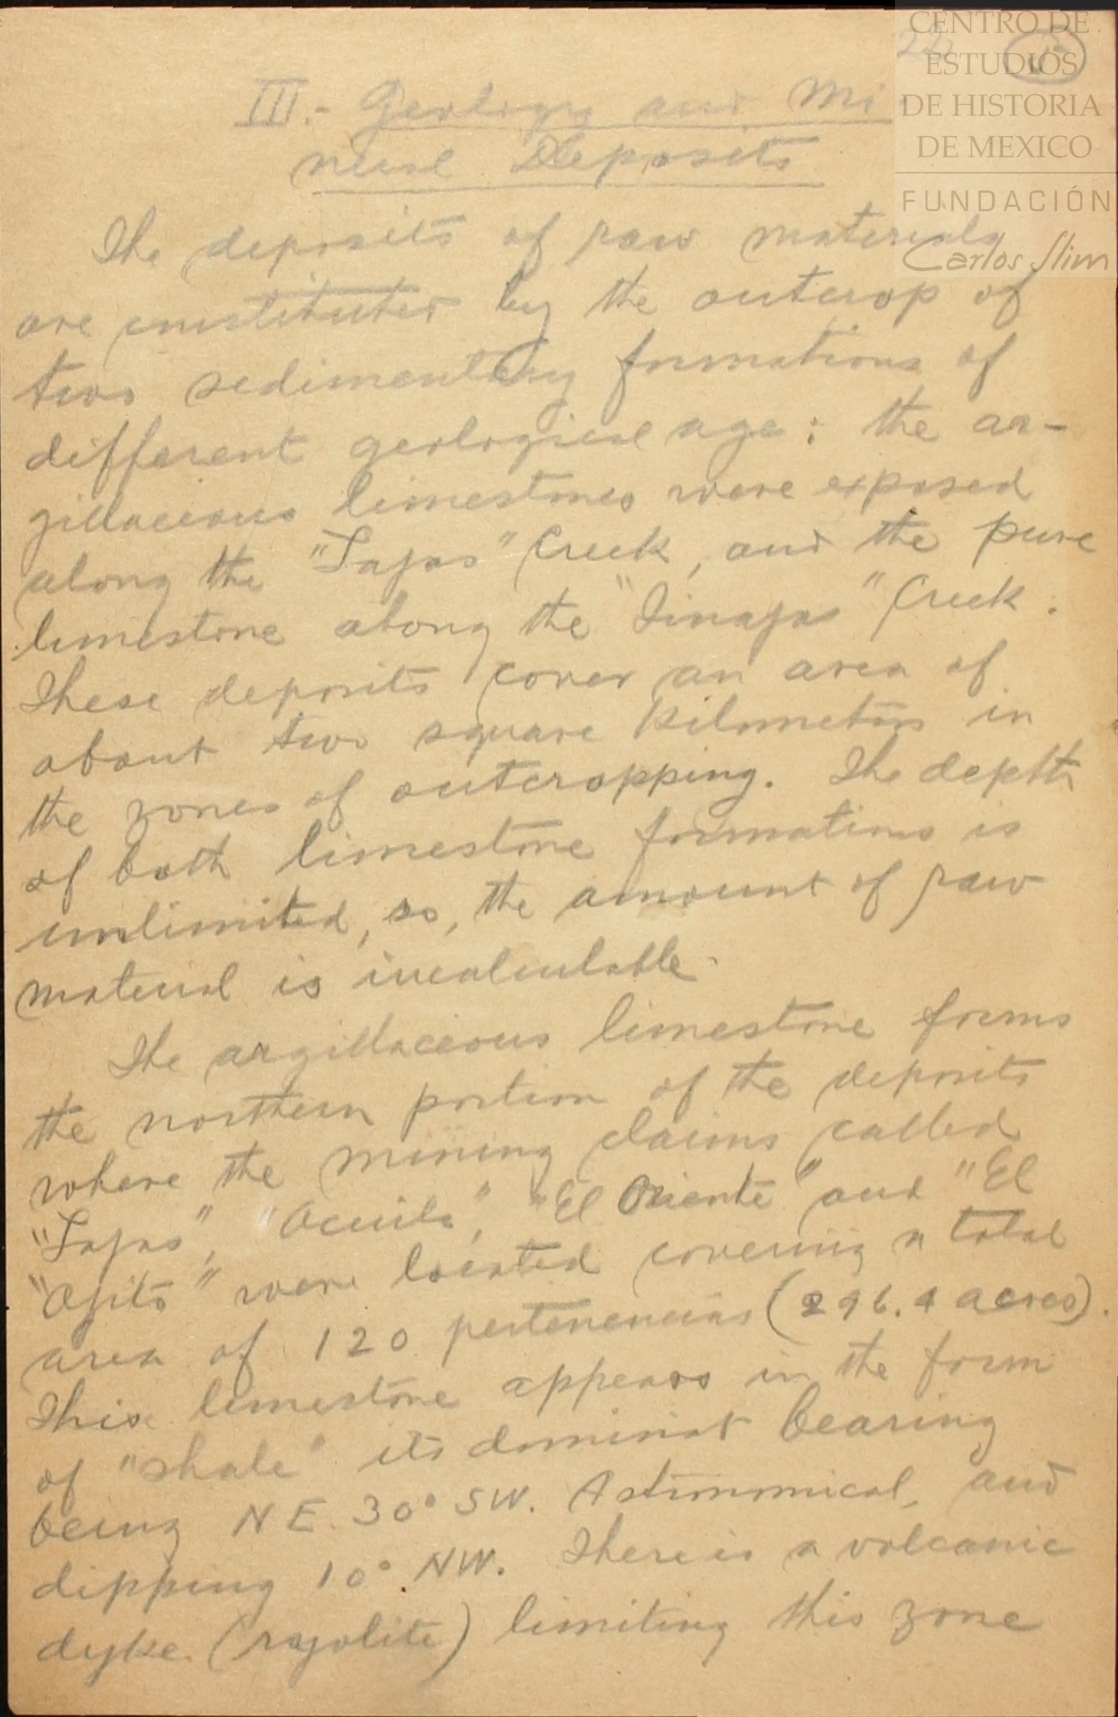 CENTRO DE
ESTUDIOS
DE HISTORIA
DE MEXICO
FUNDACIÓN
Carlos Slim
22
III.- Geology and Mi-
neral Deposits
The deposits of raw materials
are constituted by the outcrop of
two sedimentary formations of
different geological age: the ar-
gillaceous limestones were exposed
along the "Lajas" Creek, and the pure
limestone along the "Tinajas" Creek.
These deposits cover an area of
about two square kilometers in
the zones of outcropping. The depth
of both limestone formations is
unlimited, so, the amount of raw
material is incalculable.
The argillaceous limestone forms
the northern portion of the deposits
where the mining claims called
"Lajas", "Ocuila", "El Oriente" and "El
"Ojito" were located covering a total
area of 120 pertenencias (296.4 acres).
This limestone appears in the form
of "shale" its dominat bearing
being NE. 30° SW. Astronomical, and
dipping 10° NW. There is a volcanic
dyke (ryolite) limiting this zone